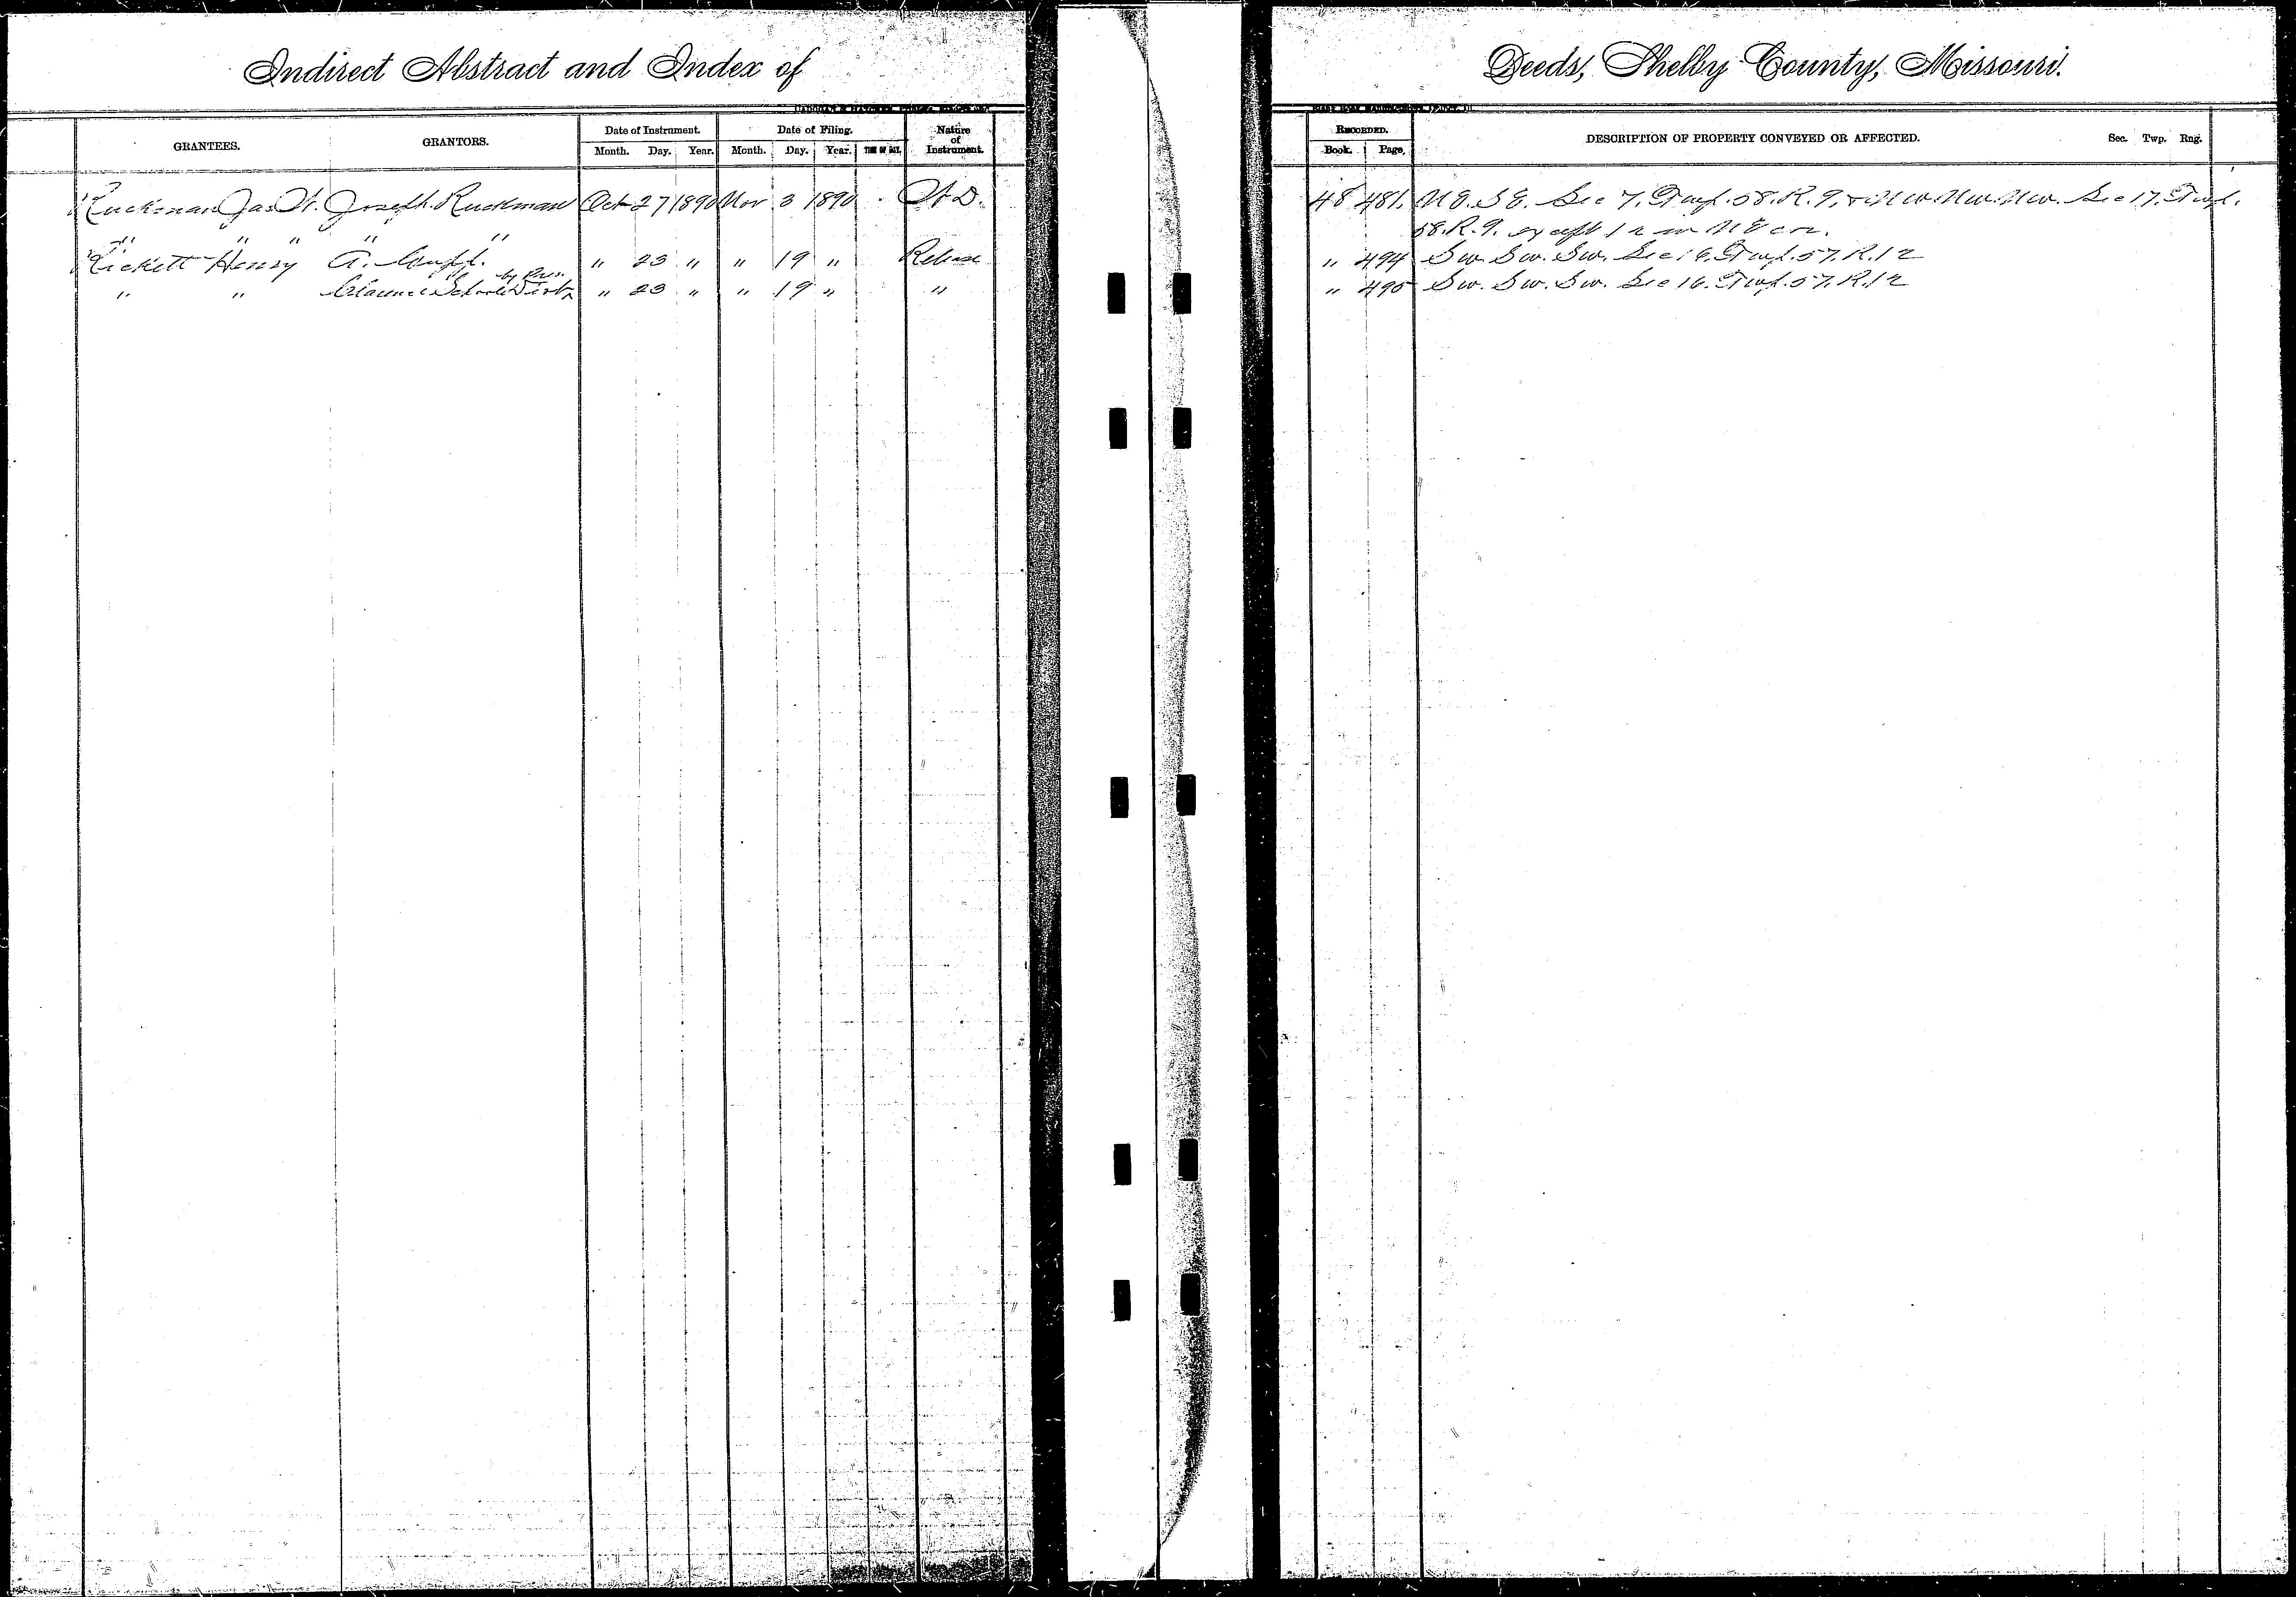 Indirect Abstract and Index of
Deeds, Shelby County, Missouri.
GRANTEES. GRANTORS. Date of Instrument. Month. Day. Year. Date of Filing. Month. Day. Year. TIME OF DAY. Nature of Instrument. RECORDED. Book. Page. DESCRIPTION OF PROPERTY CONVEYED OR AFFECTED. Sec. Twp. Rng.
Ruckman Jas W. Joseph Ruckman Oct 27 1890 Nov 3 1890 48 481. N E. S E. Sec 7. Twp. 58. R. 9. & N w. N w. N w. Sec 17. Twp.
" " " " " 58. R. 9. except 1 a in N E cor.
Rickett Henry A. " 23 " " 19 " Release " 494 S w. S w. S w. Sec 16. Twp. 57. R. 12
" " Clarence School Dist by Pres. " 23 " " 19 " " " 495 S w. S w. S w. Sec 16. Twp. 57. R. 12